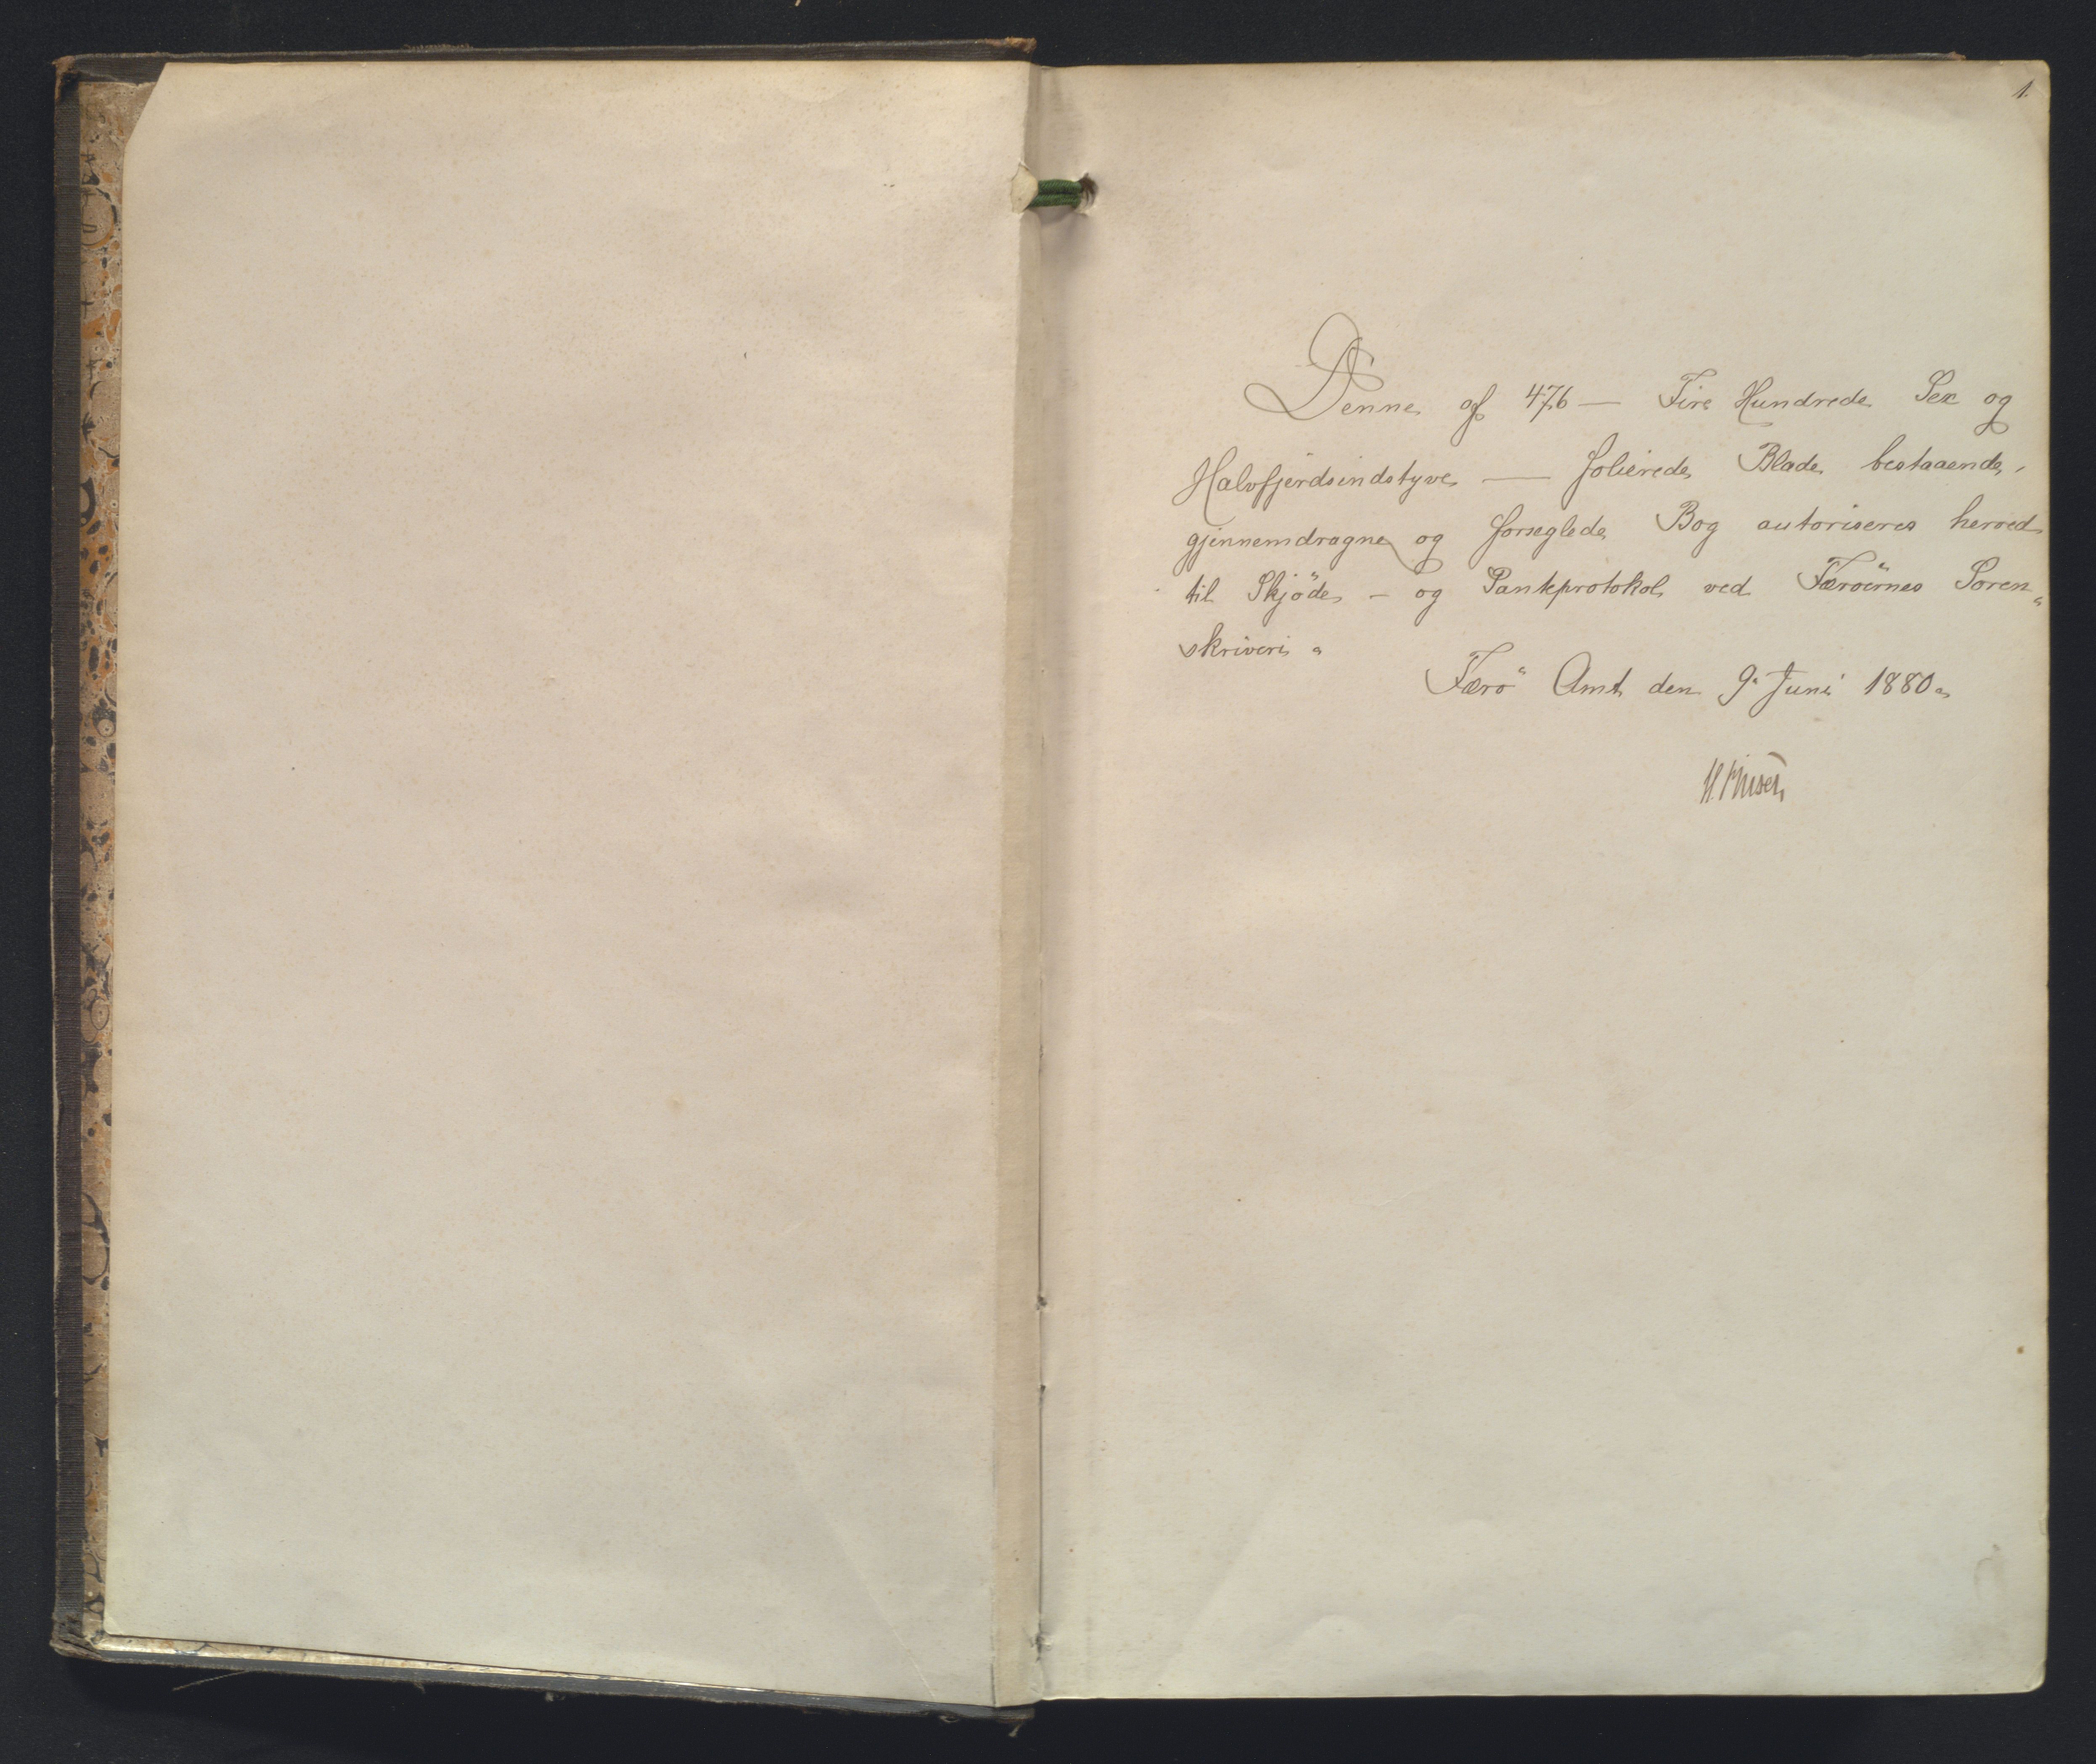 1.
Denne af 476 — Fire Hundrede Sex og
Halvfjerdsindstyve — folierede Blade bestaaende,
gjennemdragne og forseglede Bog autoriseres herved
til Skjöde- og Panteprotokol ved Færöernes Soren-
skriveri.
Færö Amt den 9. Juni 1880.